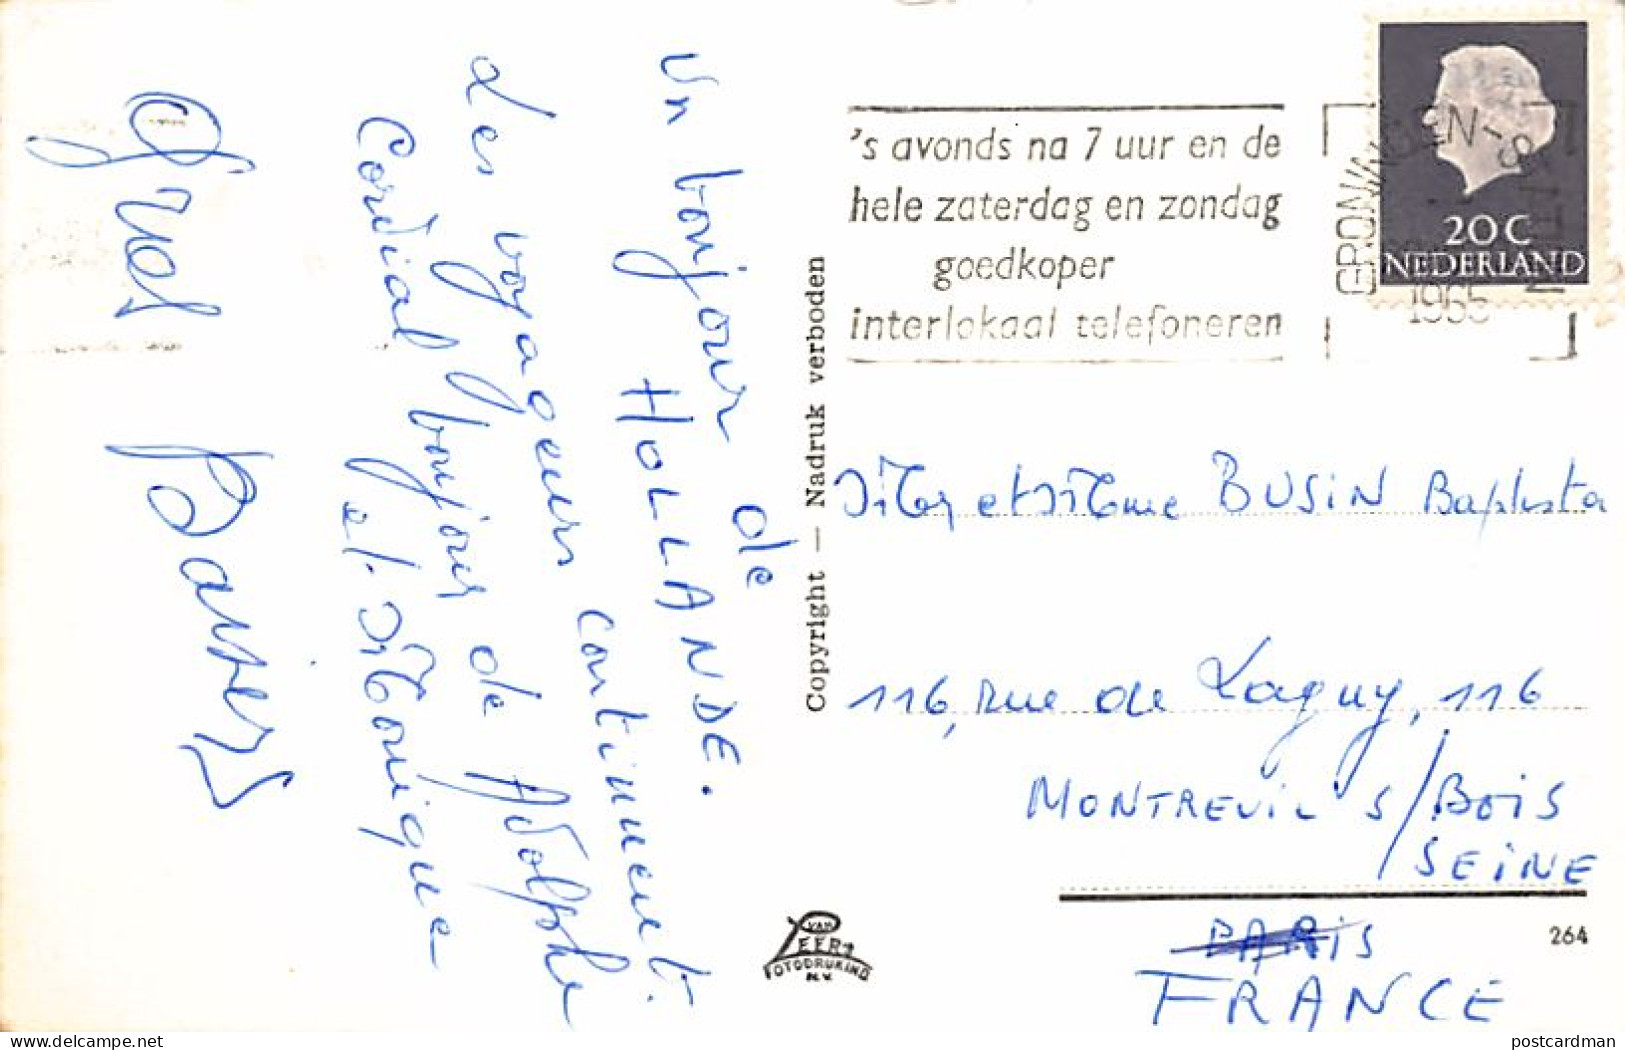 Un bonjour de
HOLLANDE.
des voyageurs continuent.
Cordial bonjour de Adolphe
et Monique
Baiser
Copyright — Nadruk verboden
's avonds na 7 uur en de
hele zaterdag en zondag
goedkoper
interlokaal telefoneren
GRONINGEN-STATION
1965
20 C
NEDERLAND
Mr et Mme BUSIN Baptista
116, rue de Lagny, 116
MONTREUIL S/BOIS
SEINE
PARIS
FRANCE
264
VAN
LEER'S
FOTODRUKIND
N.V.
postcardman